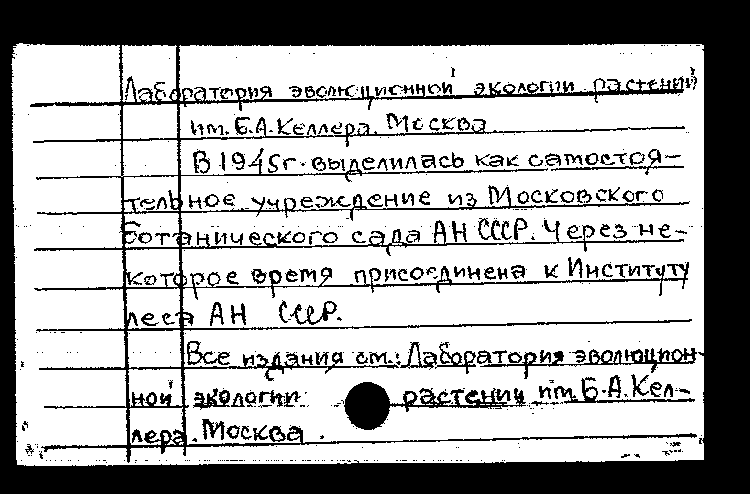 Лаборатория эволюционной экологии растений
им. Б.А. Келлера. Москва
В 1945г. выделилась как самостоя-
тельное учреждение из Московского
ботанического сада АН СССР. Через не-
которое время присоединена к Институту
леса АН СССР.
Все издания см.: Лаборатория эволюцион-
ной экологии растений им. Б.А. Кел-
лера. Москва.